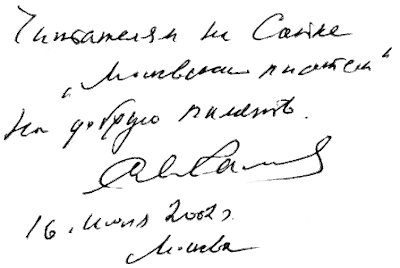 Читателям на Сайте
„Московский писатель“
На добрую память.
16. июля 2002г.
Москва